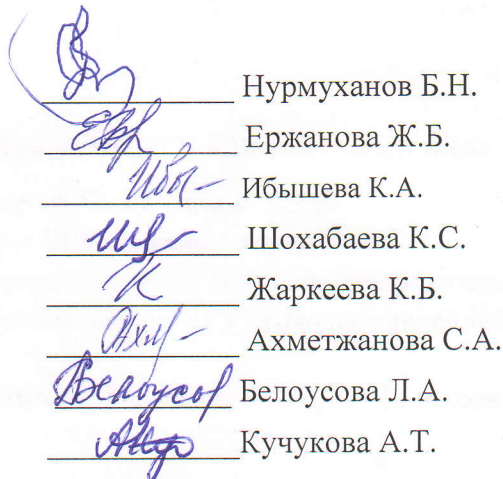 Нурмуханов Б.Н.
Ержанова Ж.Б.
Ибышева К.А.
Шохабаева К.С.
Жаркеева К.Б.
Ахметжанова С.А.
Белоусова Л.А.
Кучукова А.Т.